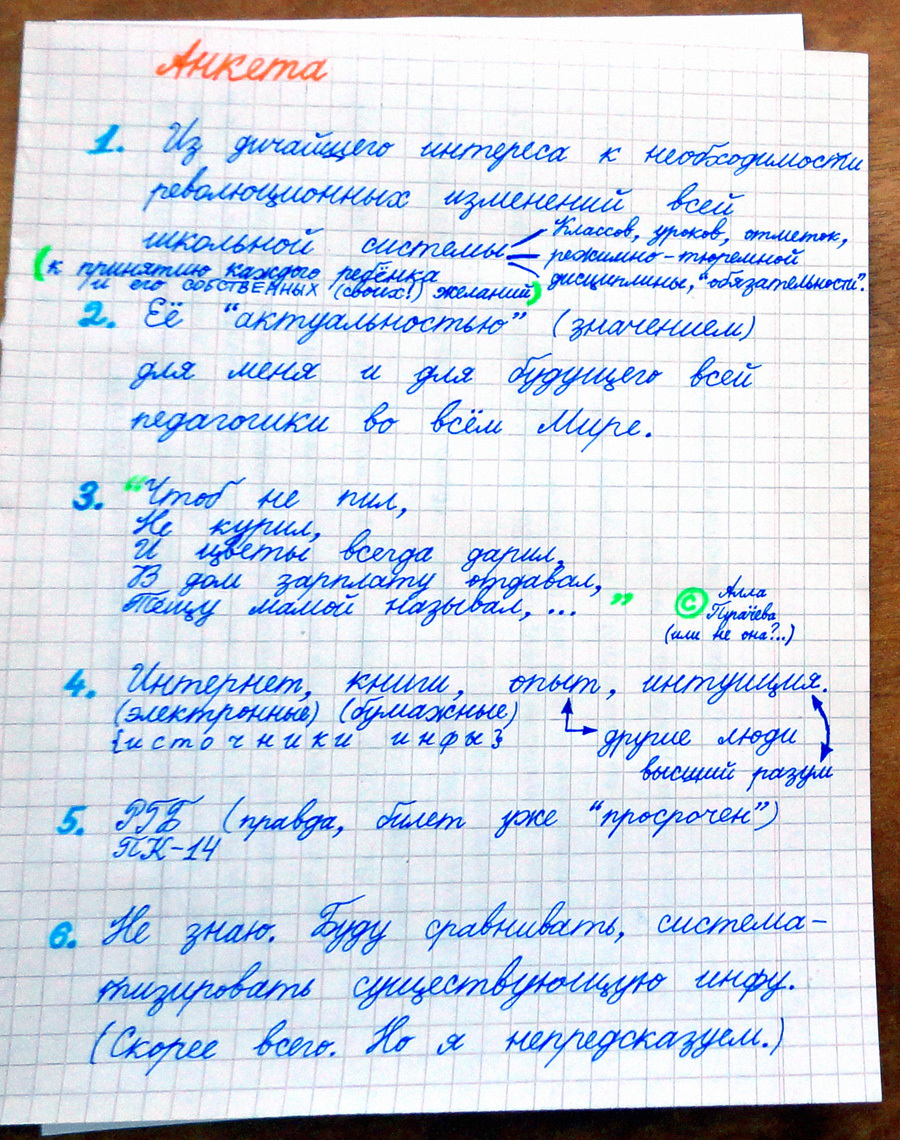 Анкета
1. Из дичайщего интереса к необходимости
революционных изменений всей
школьной системы
Классов, уроков, отметок,
режимно-тюремной
дисциплины, "обязательности".
(к принятию каждого ребёнка
и его СОБСТВЕННЫХ (своих!) желаний)
2. Её "актуальностью" (значением)
для меня и для будущего всей
педагогики во всём Мире.
3. "Чтоб не пил,
Не курил,
И цветы всегда дарил,
В дом зарплату отдавал,
Тёщу мамой называл, ... "
© Алла
Пугачёва
(или не она?..)
4. Интернет, книги, опыт, интуиция.
(электронные) (бумажные)
{источники инфы}
другие люди
высший разум
5. РГБ (правда, билет уже "просрочен")
ПК-14
6. Не знаю. Буду сравнивать, система-
тизировать существующую инфу.
(Скорее всего. Но я непредсказуем.)